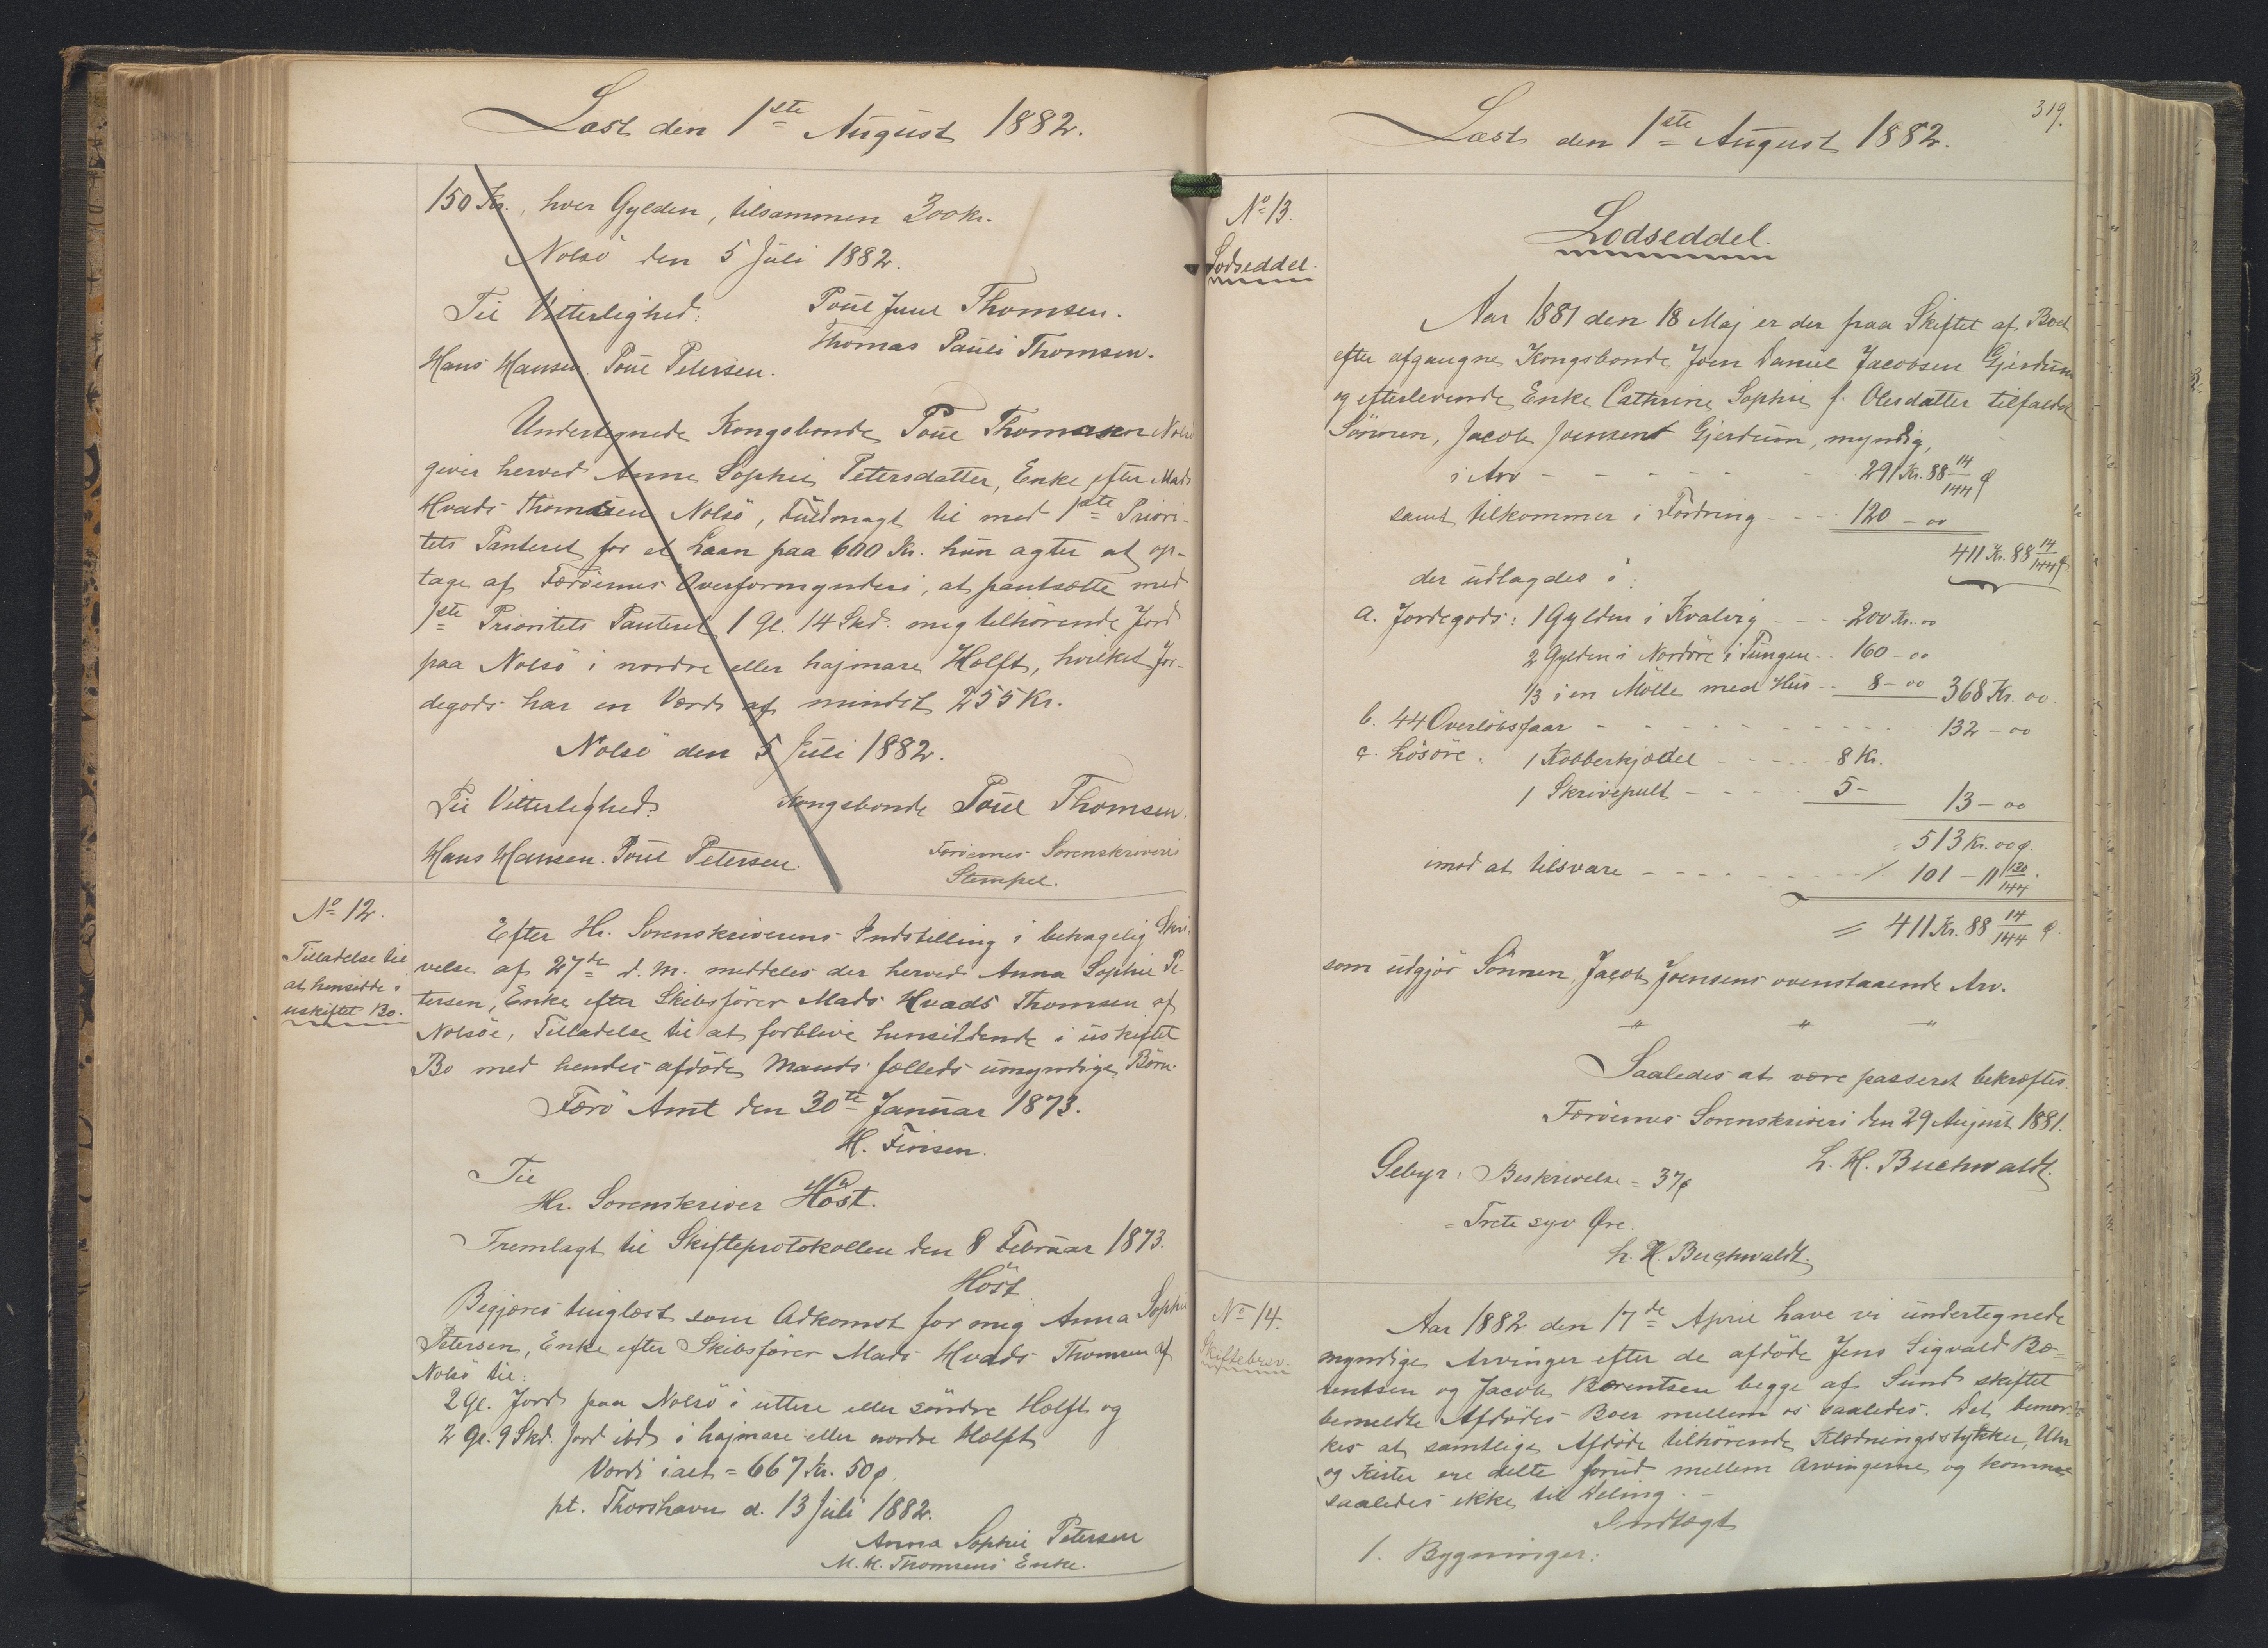 Læst den 1ste August 1882.
150 Kr., hver Gylden, tilsammen 300 Kr.
Nolsö den 5 Juli 1882.
Til Vitterlighed: Poul Juul Thomsen.
Thomas Pauli Thomsen.
Hans Hansen. Poul Petersen.
Undertegnede Kongsbonde Poul Thomsen Nolsö
giver herved Anne Sophie Petersdatter, Enke efter Mads
Hvads Thomsen Nolsö, Fuldmagt til med 1ste Priori-
tets Panteret for et Laan paa 600 Kr. hun agter at op-
tage af Færöernes Overformynderi, at pantsætte med
1ste Prioritets Panteret 1 Gl. 14 Skd. mig tilhörende Jord
paa Nolsö i nordre eller hajmare Hælft, hvilket Jor-
degods har en Værdi af mindst 255 Kr.
Nolsö den 5 Juli 1882.
Til Vitterlighed: Kongsbonde Poul Thomsen.
Hans Hansen. Poul Petersen. Færöernes Sorenskriveri
Stempel.
No 12.
Tilladelse til
at hensidde i
uskiftet Bo.
Efter Hr. Sorenskriverens Indstilling i behagelig Skri-
velse af 27de d. M. meddeles der herved Anna Sophie Pe-
tersen, Enke efter Skibsförer Mads Hvads Thomsen af
Nolsöe, Tilladelse til at forblive hensiddende i uskiftet
Bo med hendes afdöde Mands fælleds umyndige Börn.
Færö Amt den 30te Januar 1873.
H. Finsen.
Til
Hr. Sorenskriver Höst.
Fremlagt til Skifteprotokollen den 8 Februar 1873.
Höst
Begjæres tinglæst som Adkomst for mig Anna Sophie
Petersen, Enke efter Skibsförer Mads Hvads Thomsen af
Nolsö til:
2 Gl. Jord paa Nolsö i uttere eller söndre Hælft og
2 Gl. 9 Skd. Jord ibd. i hajmare eller nordre Hælft
Værdi ialt = 667 Kr. 50 ø.
pt. Thorshavn d. 13 Juli 1882.
Anna Sophie Petersen
M. H. Thomsens Enke.
319.
Læst den 1ste August 1882.
No 13.
Lodseddel.
Lodseddel.
Aar 1881 den 18 Maj er der paa Skiftet af Boet
efter afgangne Kongsbonde Joen Daniel Jacobsen Gjerdum
og efterlevende Enke Cathrine Sophie f. Olesdatter tilfaldet
Sönnen, Jacob Joensen Gjerdum, myndig,
i Arv - - - - - 291 Kr. 88 14/144 ø
samt tilkommer i Fordring - - - 120 - 00
411 Kr. 88 14/144 ø.
der udlagdes i:
a. Jordegods: 1 Gylden i Kvalvig - - - 200 Kr. 00
2 Gylden i Nordöre i Tungen - - 160 - 00
1/3 i en Mölle med Hus - - 8 - 00 368 Kr. 00.
b. 44 Overlöbsfaar - - - - - - - - - - 132 - 00
c. Lösöre: 1 Kobberkjæddel - - - - - 8 Kr.
1 Skrivepult - - - - - 5 - 13 - 00
513 Kr. 00 ø.
imod at tilsvare - - - - - - - - - ÷ 101 - 11 130/144.
= 411 Kr. 88 14/144 ø.
som udgjör Sönnen, Jacob Joensens ovenstaaende Arv.
" " "
Saaledes at være passeret bekræftes.
Færöernes Sorenskriveri den 29 August 1881.
L. H. Buchwaldt.
Gebyr: Beskrivelse = 37 ø
= Trete syv Øre.
L. H. Buchwaldt.
No 14.
Skiftebrev.
Aar 1882 den 17de April have vi undertegnede
myndige Arvinger efter de afdöde Jens Sigvald Bæ-
rentsen og Jacob Bærentsen begge af Sund skiftet
bemeldte Afdödes Boer mellem os saaledes. Det bemær-
kes at samtlige Afdöde tilhörende Klædningsstykker, Uhr
og Kister ere delte forud mellem Arvingerne og komme
saaledes ikke til Deling. -
Indtægt
1. Bygninger: